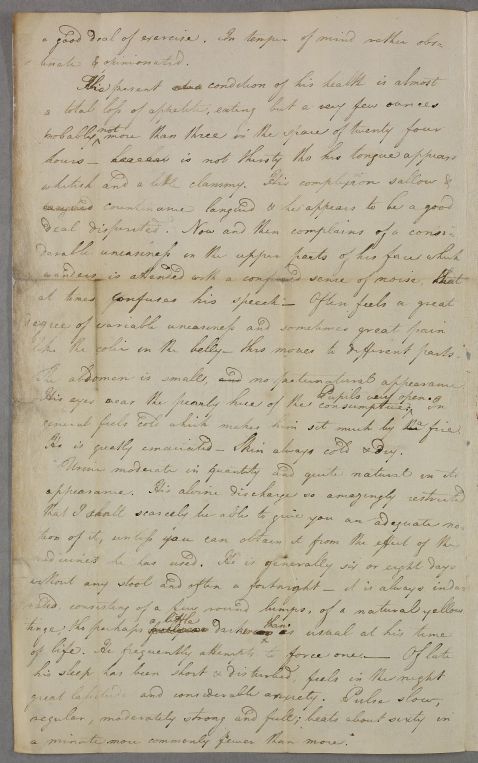 a good deal of exercise. In temper of mind rather obs-
tinate & opinionated.
The present condition of his health is almost
a total loss of appetite, eating but a very few ounces
probably not more than three in the space of twenty four
hours – is not thirsty tho his tongue appears
whitish and a little clammy. His complexion sallow &
countinance languid & he appears to be a good
deal dispirited. Now and then complains of a consi-
derable uneasiness in the upper parts of his face which
wanders is attended with a confused sence of noise, that
at times confuses his speech – Often feels a great
degree of variable uneasiness and sometimes great pain
like the colic in the belly – this moves to different parts.
The abdomen is smaler, and no preternatural appearance
His eyes wear the pearly hue of the consumptive, Pupils very open. In
general feels cold which makes him sit much by the fire
He is greatly emaciated – Skin always cold & dry.
Urine moderate in quantity and quite natural in its
appearance. His alvine discharge so amazingly restricted
that I shall scarcely be able to give you an adequate no-
tion of it, unless you can obtain it from the effect of the
medicines he has used. He is generally six or eight days
without any stool and often a fortnight – it is always indu-
rated, consisting of a few round lumps, of a natural yellow
tinge, tho perhaps a little darker than is usual at his time
of life. He frequently attempts to force one – Of late
his sleep has been short & disturbed, feels in the night
great lassitude and considerable anxiety. Pulse slow,
regular, moderately strong and full; beats about sixty in
a minute more commonly fewer than more.